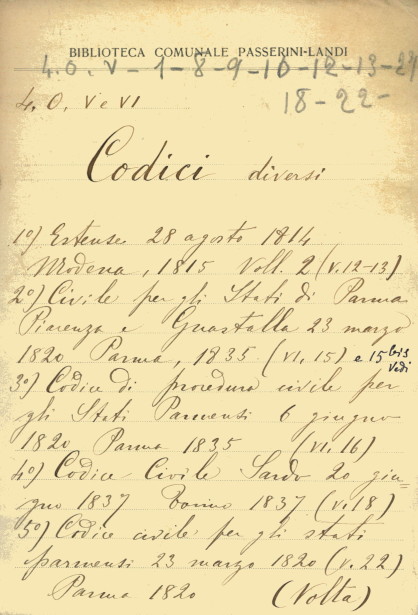 BIBLIOTECA COMUNALE PASSERINI-LANDI
4. O. V - 1 - 8 - 9 - 10 - 12 - 13 - 21
18 - 22 -
4. O. V e VI
Codici diversi
1º) Estense 28 agosto 1814
Modena, 1815 Voll. 2 (V. 12-13)
2º) Civile per gli Stati di Parma
Piacenza e Guastalla 23 marzo
1820 Parma, 1835 (VI, 15) e 15 bis
Vedi
3º) Codice di procedura civile per
gli Stati Parmensi 6 giugno
1820 Parma 1835 (VI. 16)
4º) Codice Civile Sardo 20 giu-
gno 1837 Torino 1837 (V. 18)
5º) Codice civile per gli stati
parmensi 23 marzo 1820 (V. 22)
Parma 1820 (Volta)